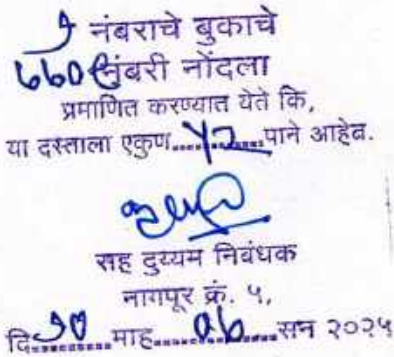 १ नंबराचे बुकाचे
नंबरी नोंदला
प्रमाणित करण्यात येते कि,
या दस्ताला एकुण....५२....पाने आहेत.
सह दुय्यम निबंधक
नागपूर क्रं. ५,
दि.१०......माह....०७....सन २०२५